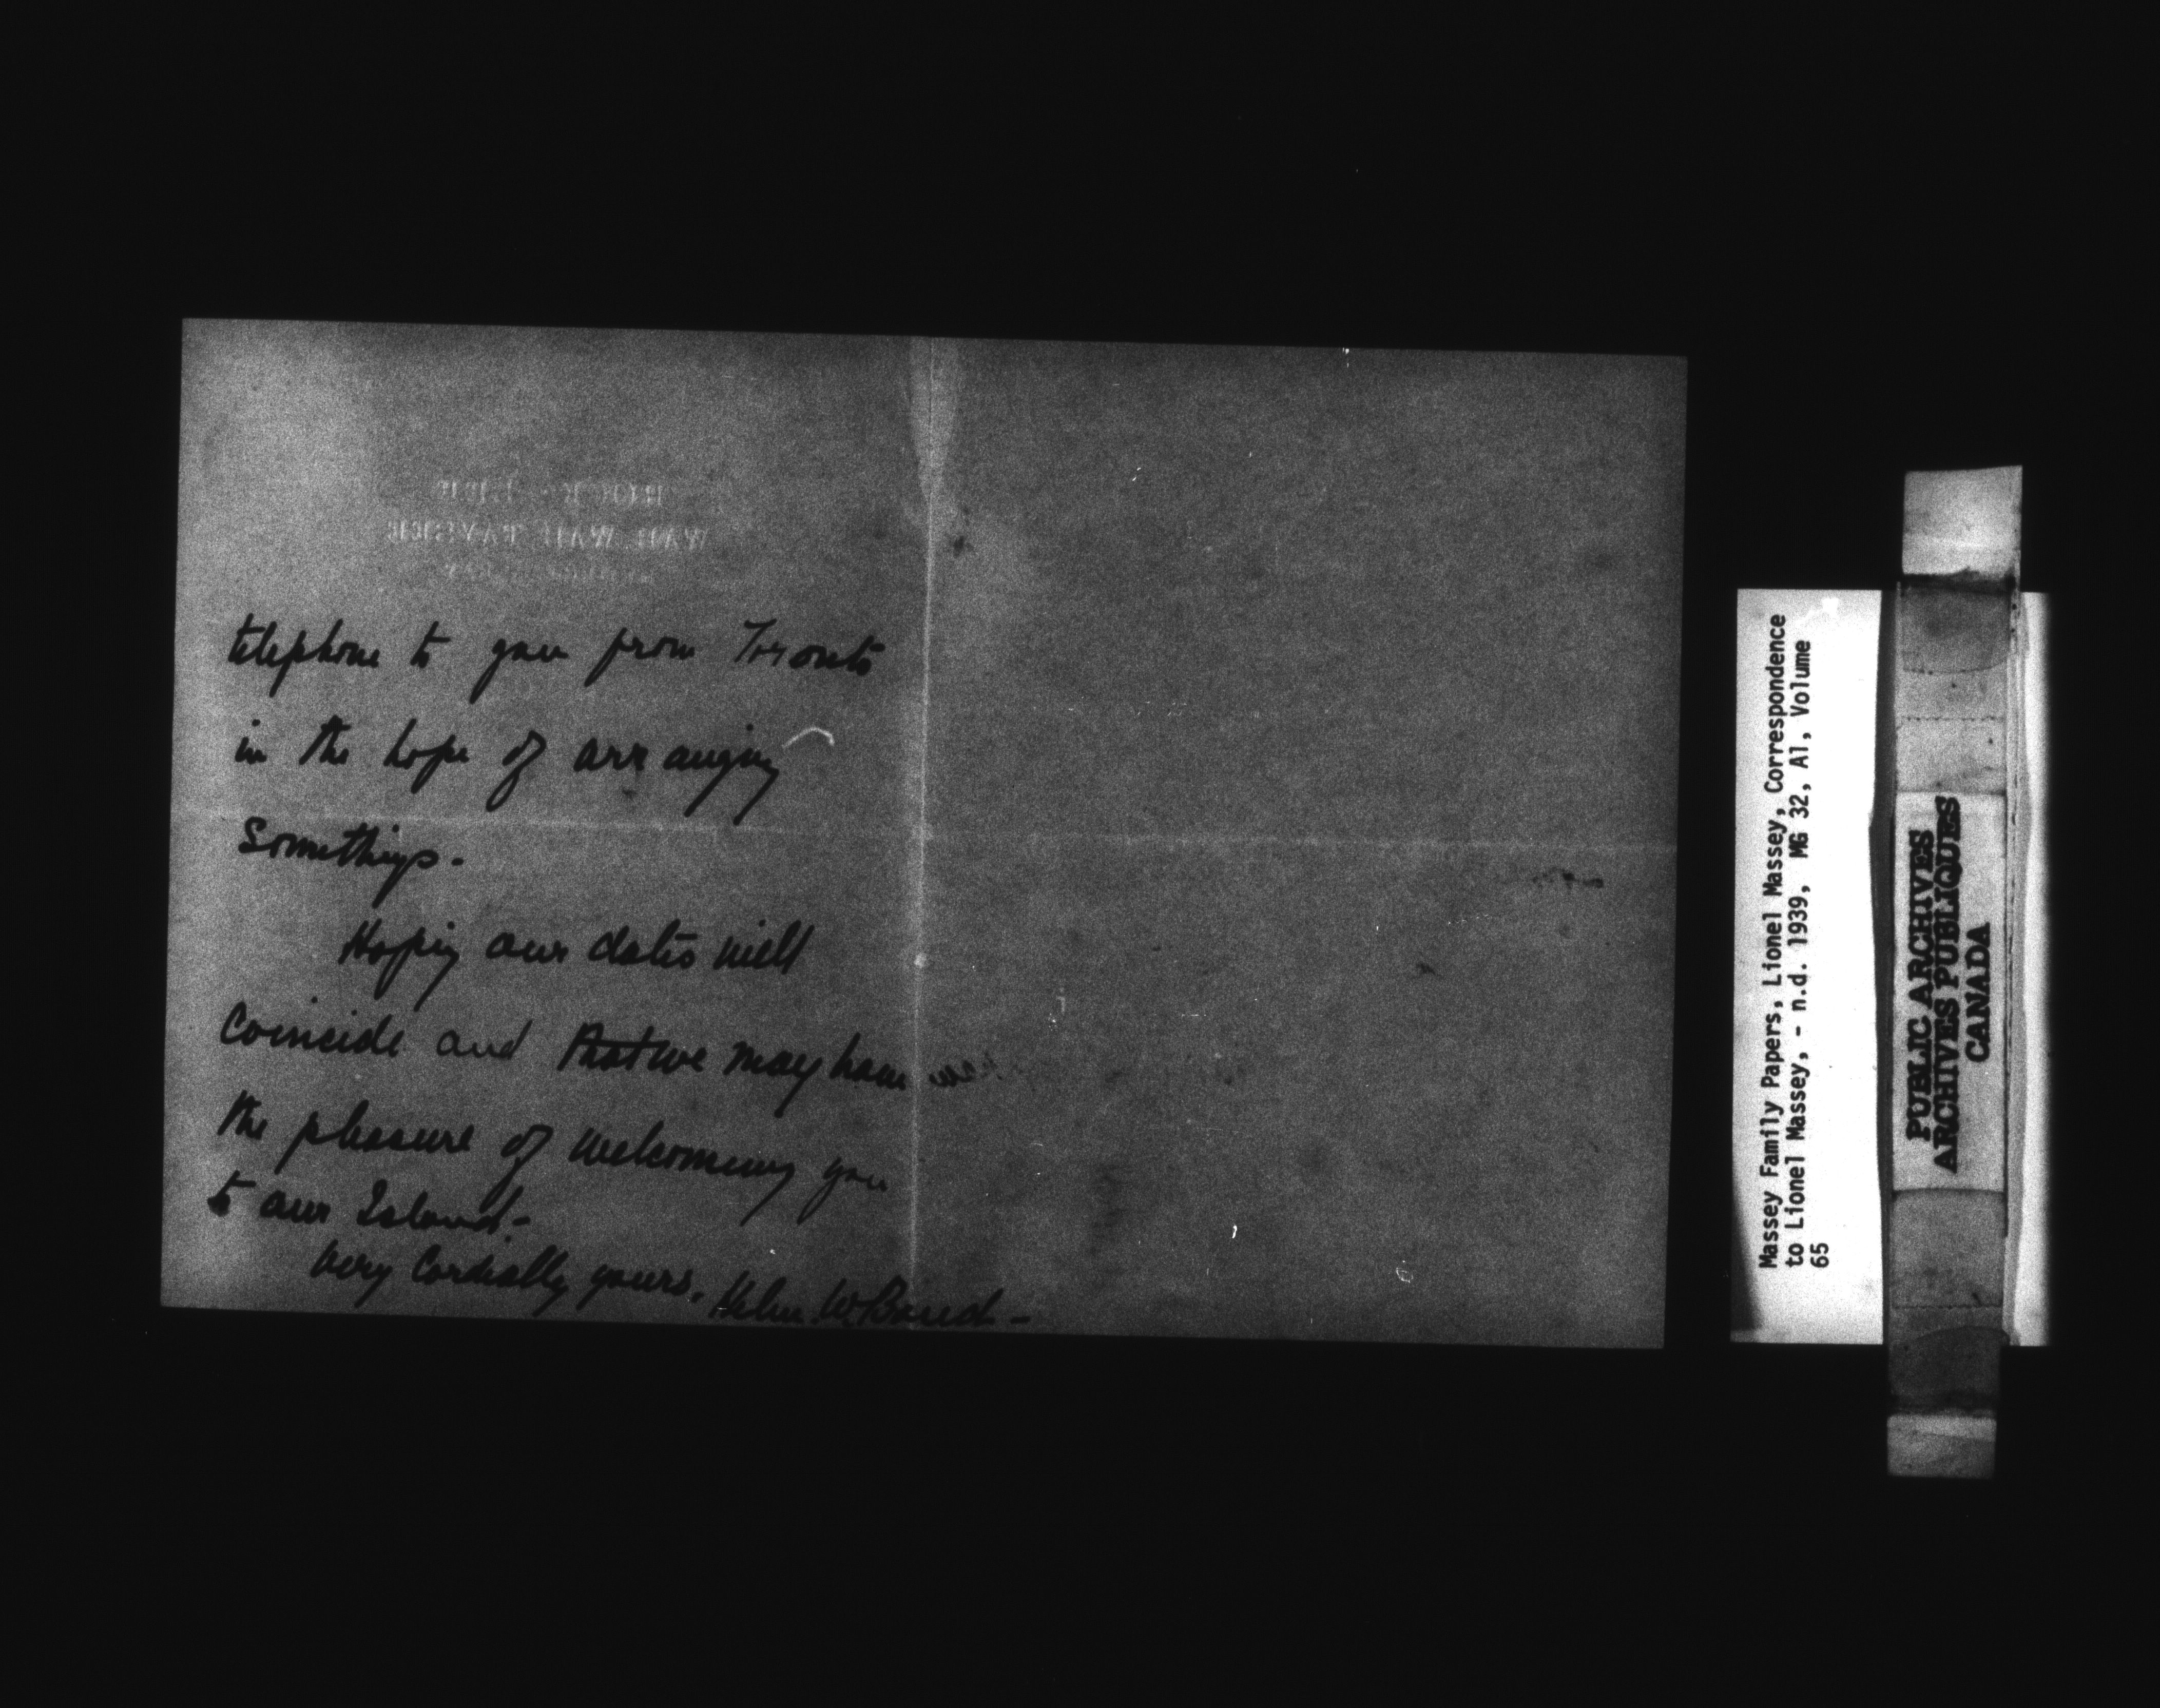 telephone to you from Toronto
in the hope of arranging
Something.
Hoping our dates will
Coincide and that we may have
the pleasure of welcoming you
to our Island-
Very Cordially yours, Helen W.
Massey Family Papers, Lionel Massey, Correspondence
to Lionel Massey, - n.d. 1939, MG 32, A1, Volume
65
PUBLIC ARCHIVES
ARCHIVES PUBLIQUES
CANADA